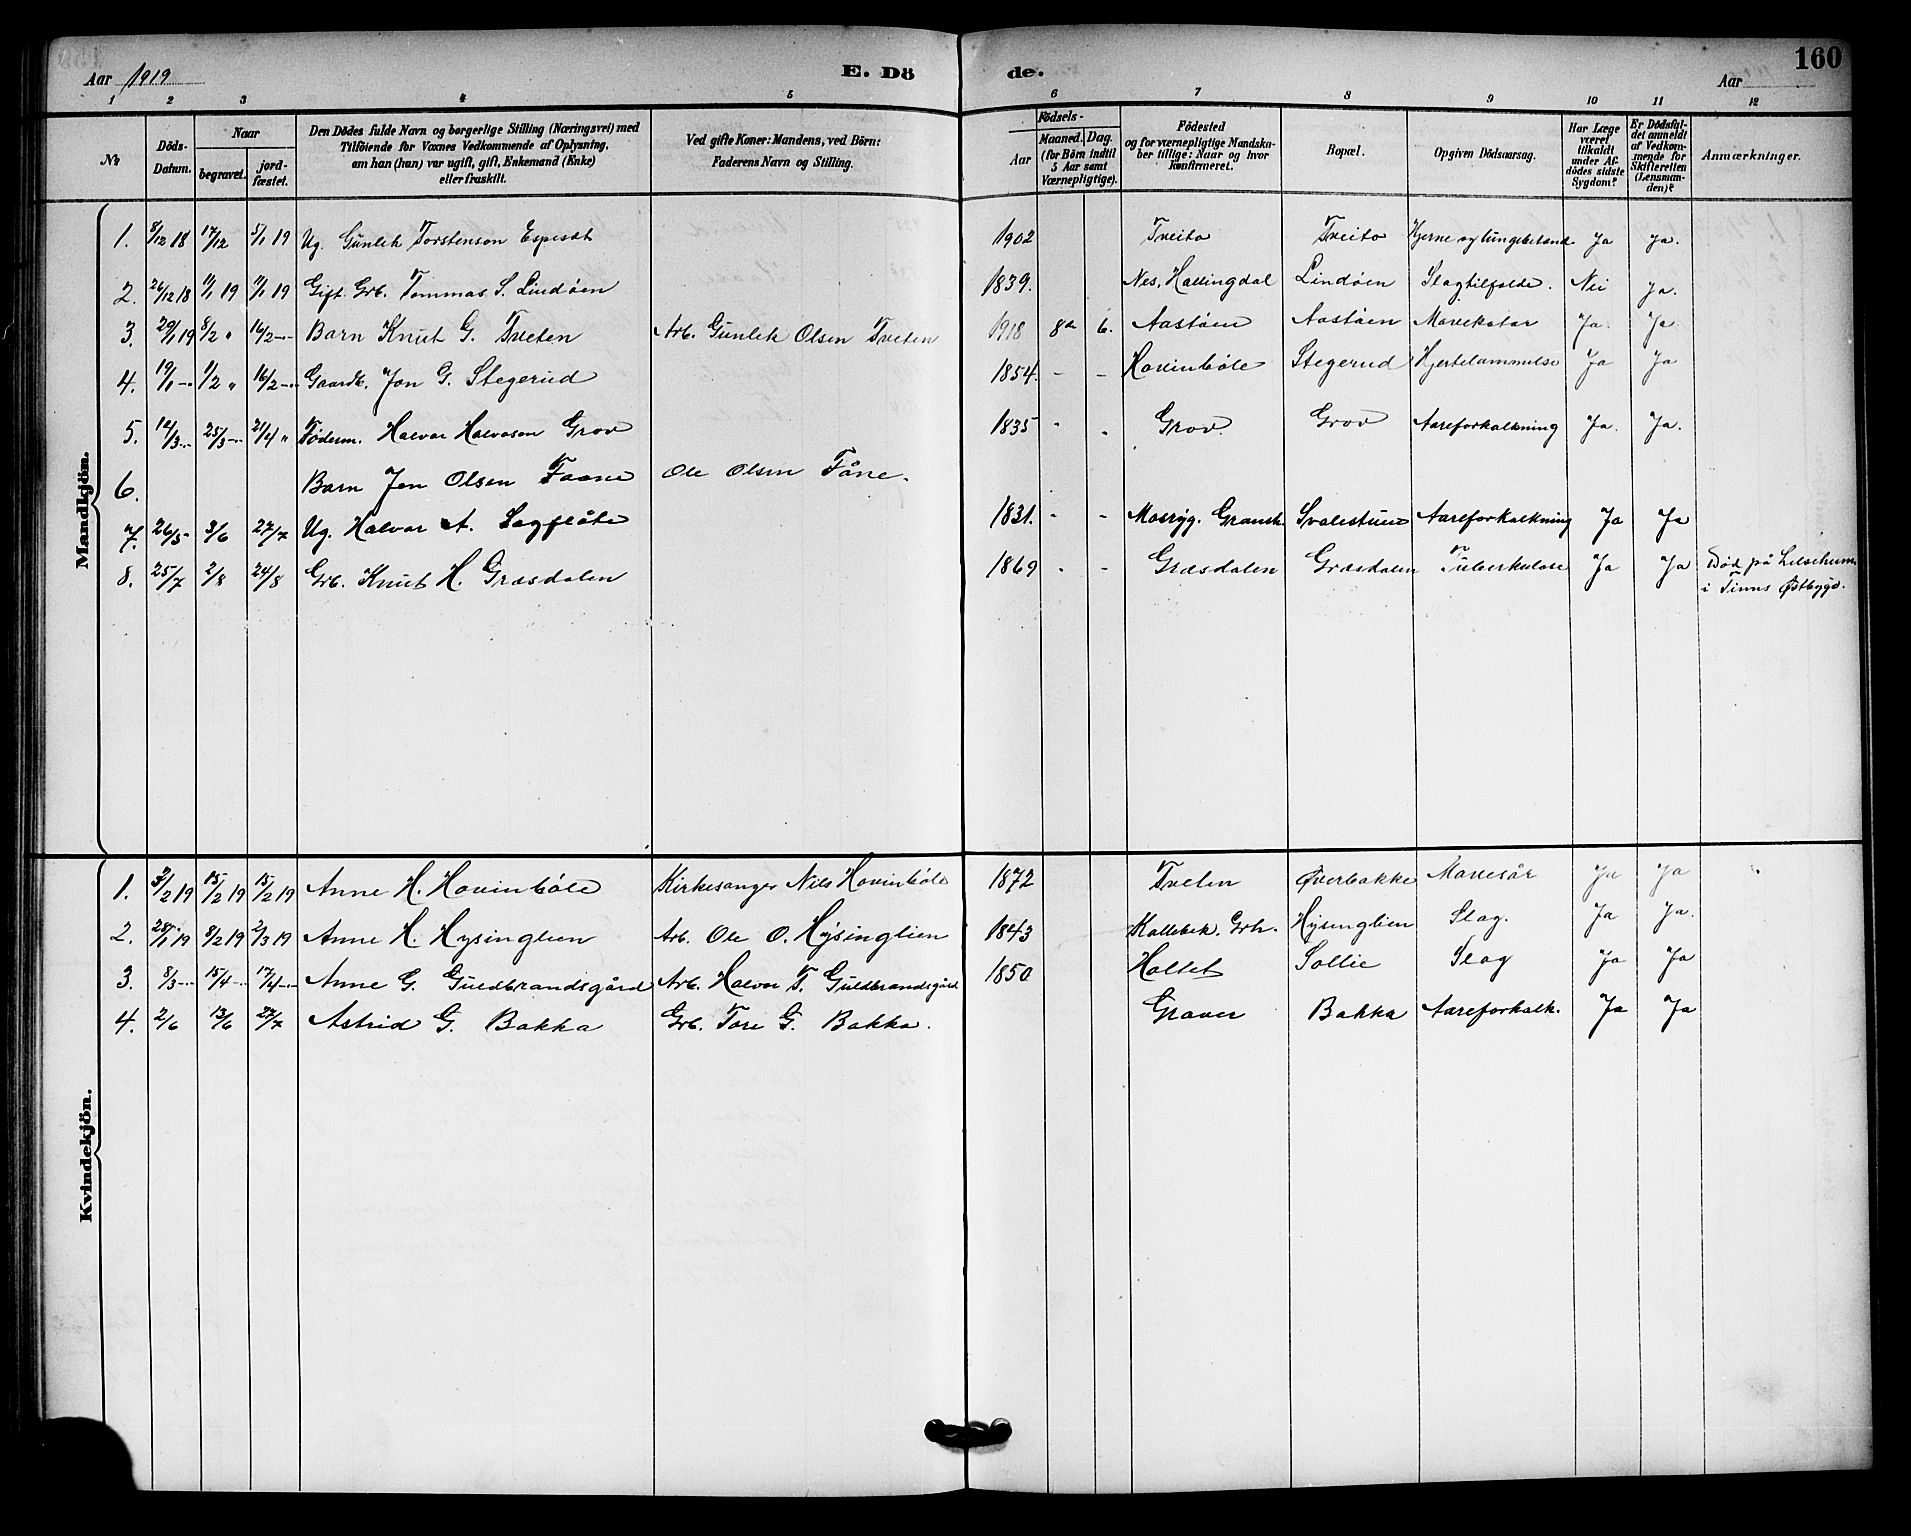 Aar 1919
E. Dö
de.
Aar
160
1 2 3 4 5 6 7 8 9 10 11 12
No.
Döds-
Datum.
Naar
begravet.
jord-
fæstet.
Den Dödes fulde Navn og borgerlige Stilling (Næringsvei) med
Tilföiende for Voxnes Vedkommende af Oplysning,
om han (hun) var ugift, gift, Enkemand (Enke)
eller fraskilt.
Ved gifte Koner: Mandens, ved Börn:
Faderens Navn og Stilling.
Födsels-
Aar
Maaned. Dag.
(for Börn indtil
5 Aar samt
Værnepligtige).
Födested
og for værnepligtige Mandska-
ber tillige: Naar og hvor
konfirmeret.
Bopæl.
Opgiven Dödsaarsag.
Har Læge
været
tilkaldt
under Af-
dödes sidste
Sygdom?
Er Dödsfal-
det anmeldt
af Vedkom-
mende for
Skifteretten
(Lensman-
den)?
Anmærkninger.
Mandkjön.
1. 8/12 18 17/12 5/1 19 Ug. Gunlek Torstenson Espeset 1902 Tveito Tveito Hjerne og lungebetænd. Ja Ja.
2. 26/12 18 11/1 19 11/1 19 Gift. Grb. Tommas S. Lindöen 1839. Nes, Hallingdal Lindöen Slagtilfelde. Nei Ja.
3. 29/1 19 8/2 " 16/2 -- Barn Knut G. Tveten Arb. Gunlek Olsen Tveten 1918 8de 6. Aastöen Aastöen Mavekatar Ja. Ja.
4. 19/1 -- 1/2 " 16/2 -- Gaardb. Jon G. Stegerud 1854. - - Hovinböle Stegerud Hjertelammelse Ja Ja
5. 12/3 -- 25/3 -- 21/4 " Föderm. Halvor Halvorson Grov 1835 - - Grov. Grov Aareforkalkning Ja. Ja.
6. Barn Jon Olsen Faane Ole Olsen Fåne.
7. 26/5 - 3/6 27/7 Ug. Halvor A. Lagflåte 1831. - - Mosryg. Gransh. Svalestuen Aareforkalkning Ja Ja
8. 25/7 2/8 24/8 Grb. Knut H. Græsdalen 1869 - - Græsdalen Græsdalen Tuberkulose Ja Ja Död på
i Tinns Østbygd.
Kvindekjön.
1. 3/2 19 15/2 19 15/2 19 Anne H. Hovinböle Kirkesanger Nils Hovinböle 1872 Tveten Øverbakke Mavesår Ja Ja
2. 28/1 19 8/2 19 2/3 19 Anne H. Hysinglien Arb. Ole O. Hysinglien 1843 Kallebek. Grh. Hysinglien Slag. Ja Ja.
3. 8/3 -- 15/4 -- 17/4 -- Anne G. Guldbrandsgård Arb. Halvor T. Guldbrandsgård 1850 Haltet Sollie Slag Ja Ja
4. 2/6 13/6 27/7 Astrid G. Bakka Grb. Tore G. Bakka. Graver Bakka Aareforkalk. Ja Ja